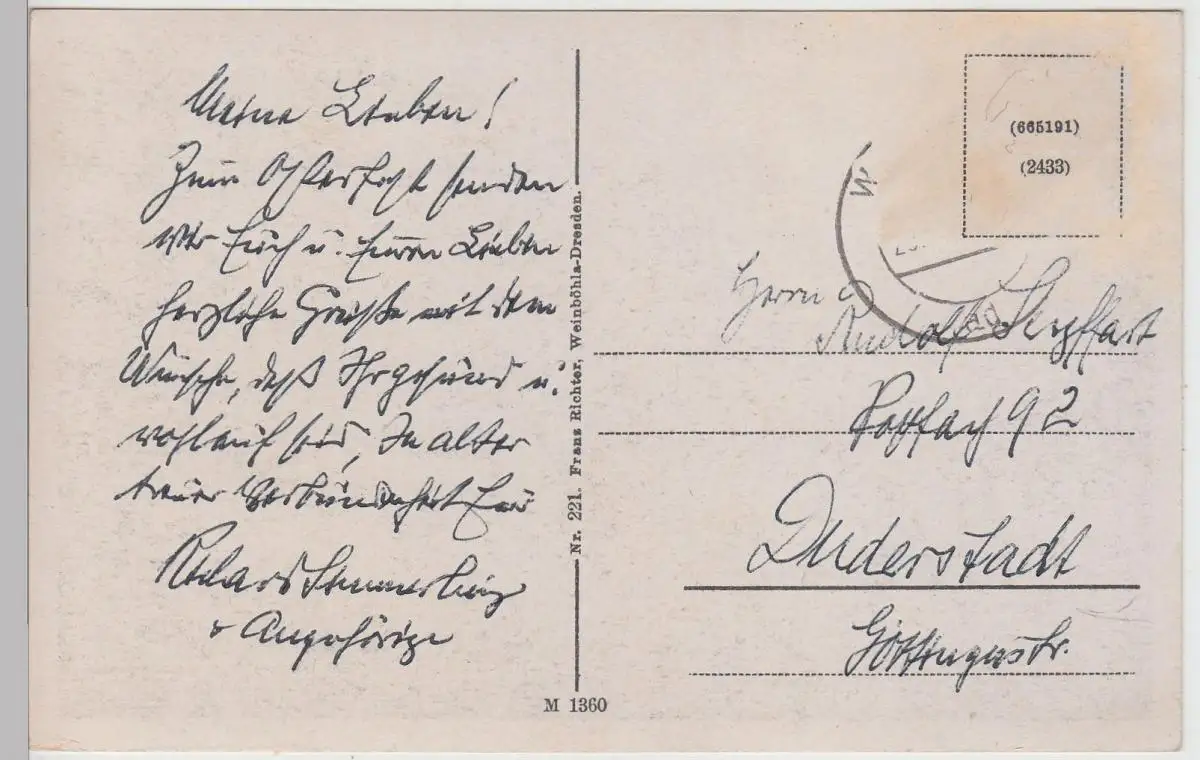 Meine Lieben!
Zum Osterfest senden
wir Euch u. Euren Lieben
herzliche Grüße mit dem
Wunsche, daß Ihr gesund u.
wohlauf seid. In alter
treuer Verbundenheit Eure
Angehörige
Nr. 221. Franz Richter, Weinböhla-Dresden.
M 1360
(665191)
(2433)
Herrn
Rudolf Seyffart
Postfach 92
Duderstadt
Göttingerstr.